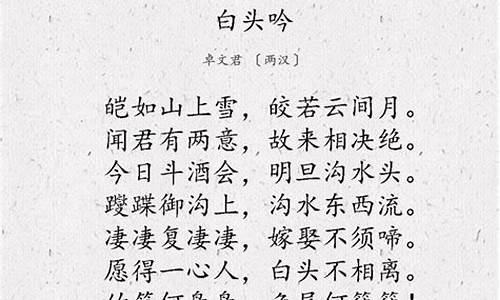 白头吟
卓文君 〔两汉〕
皑如山上雪，皎若云间月。
闻君有两意，故来相决绝。
今日斗酒会，明旦沟水头。
躞蹀御沟上，沟水东西流。
凄凄复凄凄，嫁娶不须啼。
愿得一心人，白头不相离。